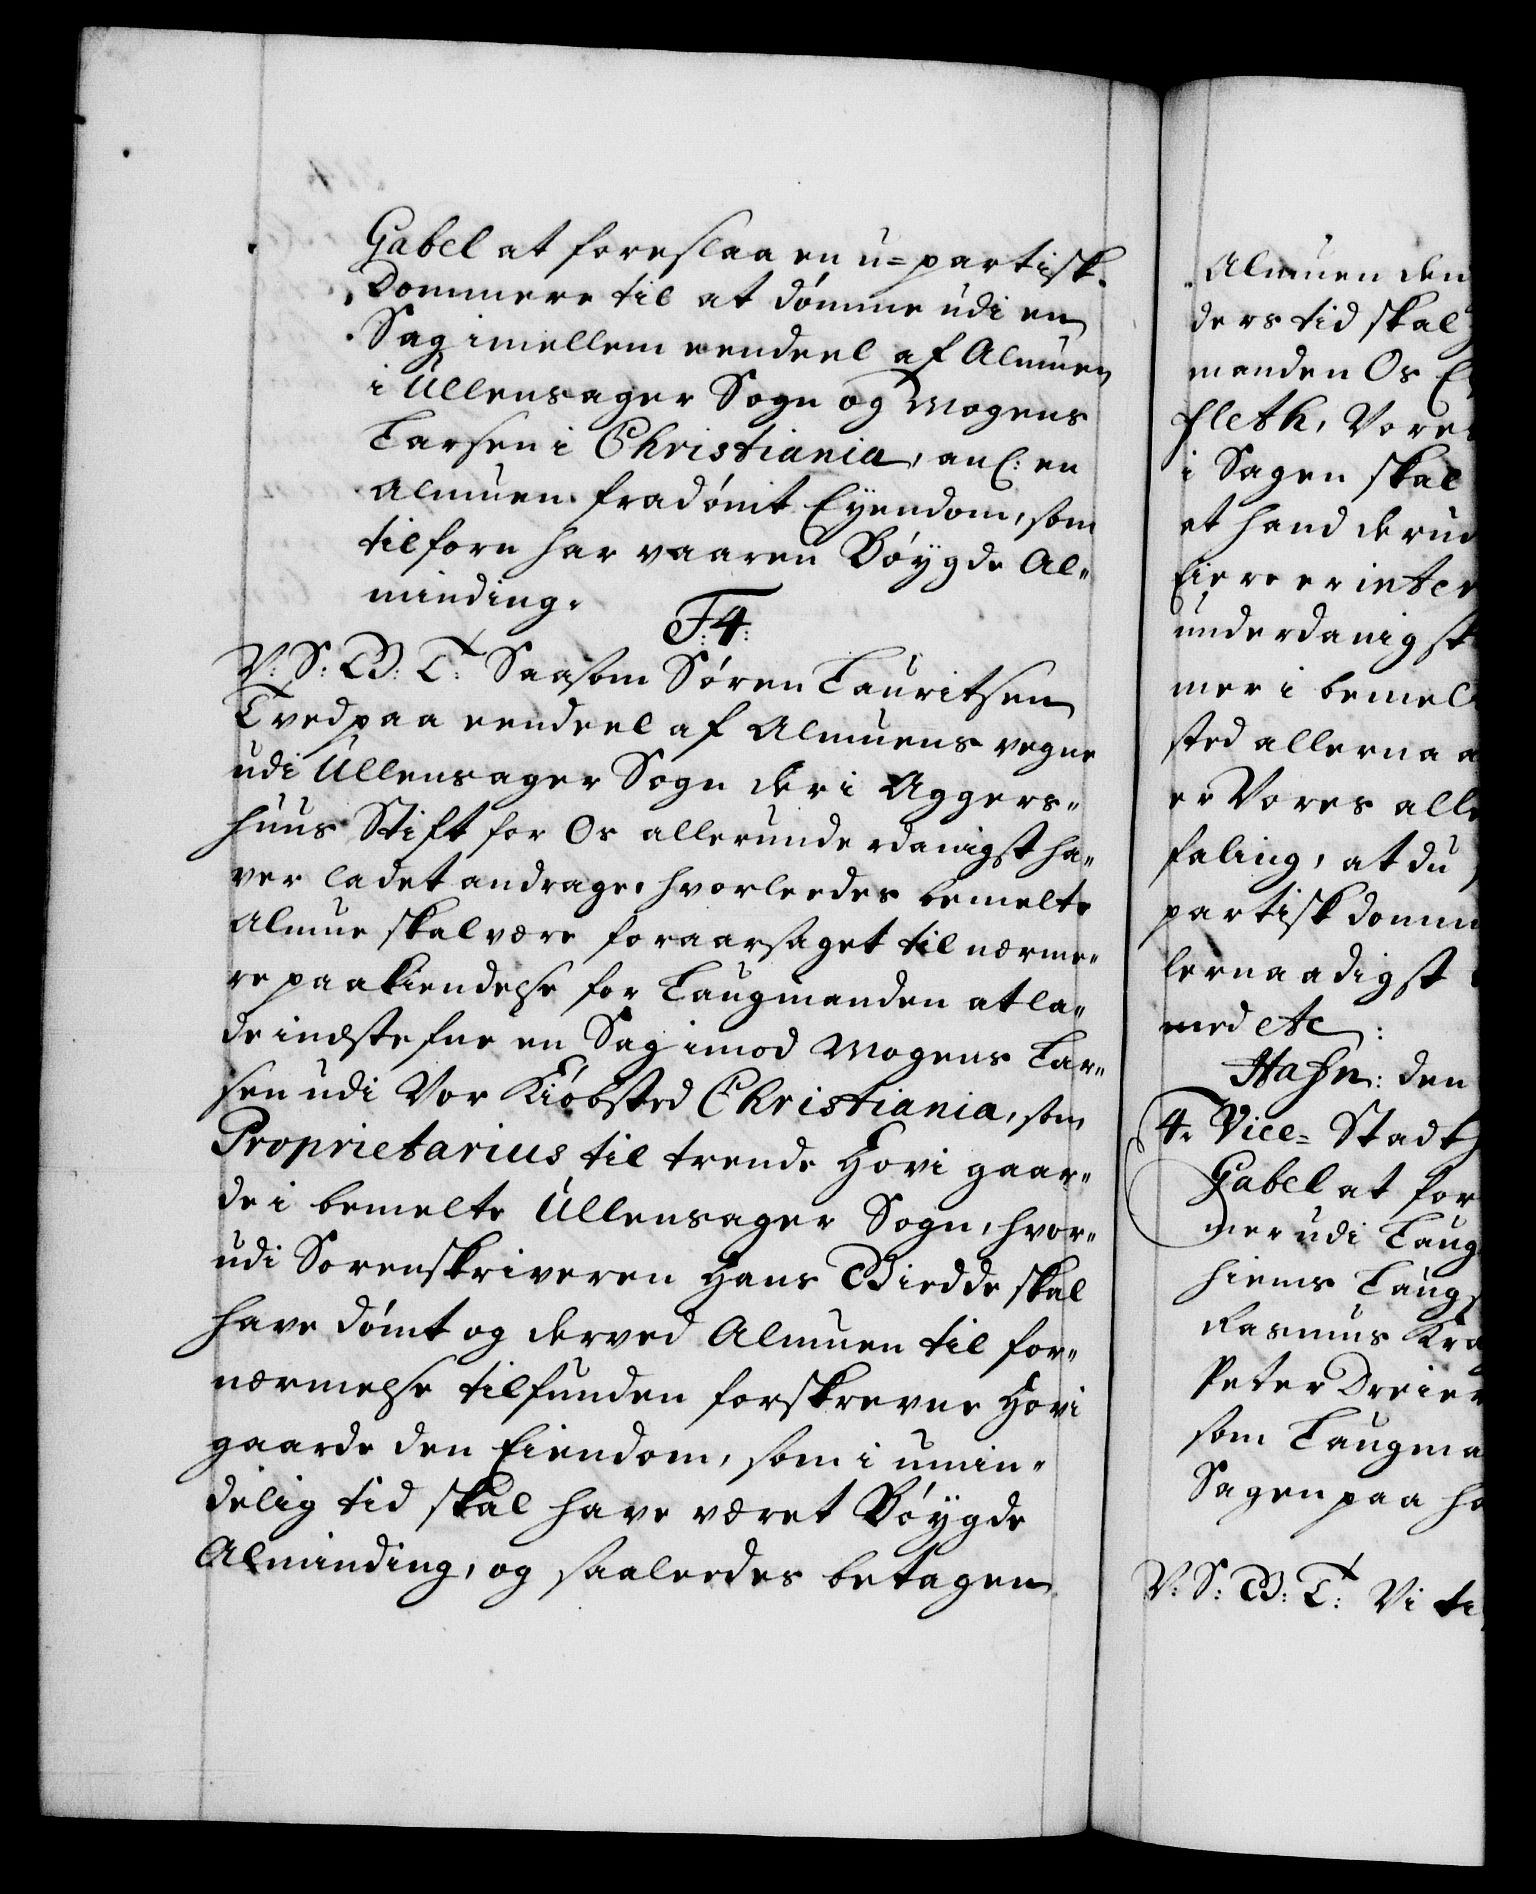 Gabel at foreslaa en u=partisk
Dommere til at dømme udi en
Sag imellem eendeel af Almuen
i Ullensager Sogn og Mogens
Larsen i Christiania, anl: en
Almuen fradømt Eyendom, som
tilforn har vaaren Bøygde Al„
minding.
F:4:
V: S: G: T: Saasom Søren Lauritsen
Tved paa eendeel af Almuens vegne
udi Ullensager Sogn der i Aggers„
huus Stift for Os allerunderdanigst ha„
ver ladet andrage, hvorleedes bemelte
Almue skal være foraarsaget til nærme„
re paakiendelse for Laugmanden at la„
de indstefne en Sag imod Mogens Lar„
sen udi Vor Kiøbsted Christiania, som
Proprietarius til trende Hovi gaar„
de i bemelte Ullensager Sogn, hvor„
udi Sorenskriveren Hans Biedde skal
have dømt og derved Almuen til for„
nærmelse tilfunden forskrevne Hovi
gaarde den Eiendom, som i umin„
delig tid skal have været Bøygde
Alminding, og saaleedes betagen
Almuen den
ders tid skal
manden Os
Fleth, Vores
i Sagen skal
at hand derud
Eiere er inter
underdanigst
mer i bemel
sted allernaa
er Vores alle
faling, at du
partisk domm
lernaadigst
med etc:
Hafn: den
4. Vice= Stadth
Gabel at for
mer udi Laug
hiems Laugs
Rasmus Kra
Peter Dreier
som Laugma
Sagen paa ha
V: S: G: T: Vi ti